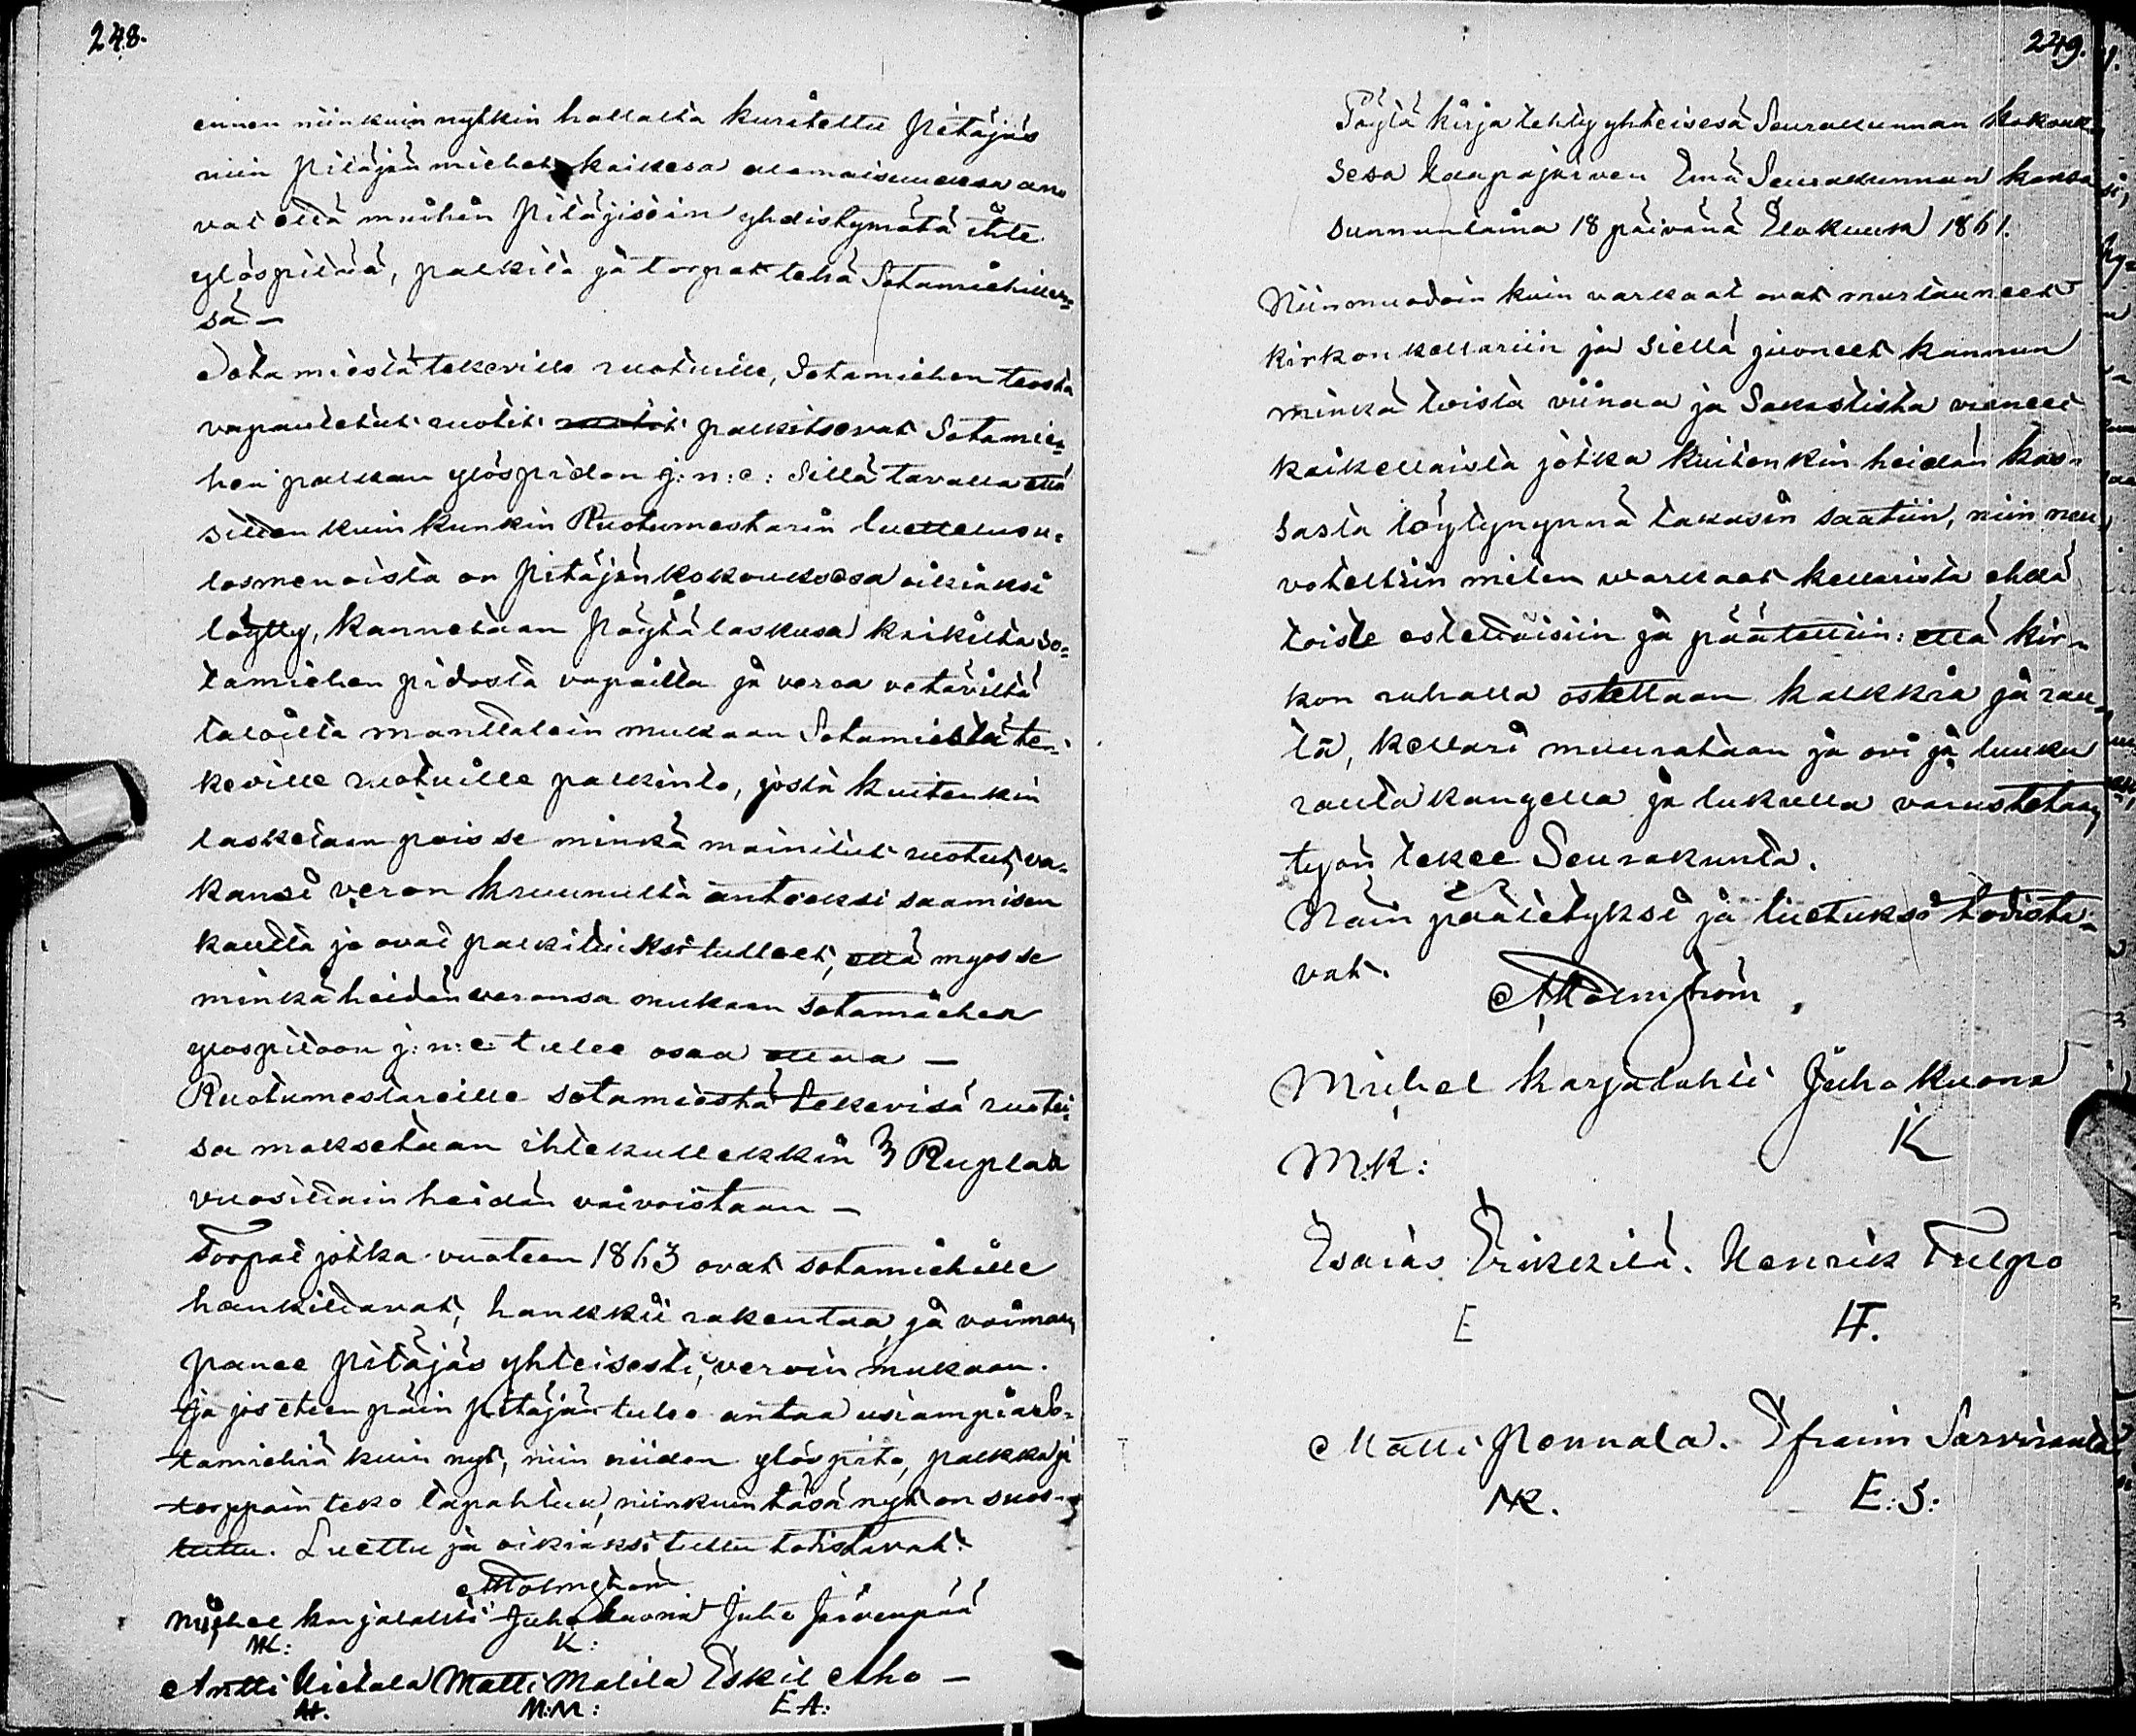 248.
ennen niinkuin nytkin hallalta kuritettu Pitäjäs
niin Pitäjän miehet kaikesa alamaisuudesa ano
vat että muihin Pitäjisiin yhdistymätä ihte
ylöspitää, palkita ja torpat tehä Sotamiehillen=
sä —
Sota miestä tekeville ruotuille, Sotamiehen teosta
vapautetut ruotit palkitsevat Sotamie=
hen palkan ylöspidon j: n: e: Sillä tavalla että
sitten kuin kunkin Ruotumestarin luettelus u=
losmenoista on Pitäjän kokouksesa oikiaksi
löytty, kannetaan Pöytä laskusa kaikilta so=
tamiehen pidosta vapailta ja veroa vetäviltä
taloilta manttalein mukaan Sotamiestä te=
keville ruotuille palkinto, josta kuitenkin
lasketaan pois se minkä mainitut ruotut, va=
kansi veron kruunulta anteeksi saamisen
kautta jo ovat palkituiksi tulleet, että myös se
minkä heidän veronsa mukaan sotamiehen
ylöspitoon j: n: e: tulee osaa ottaa —
Ruotumestareille sotamiestä tekevisä ruotui=
sa maksetaan ihtekullekkin 3 Ruplaa
vuosittain heidän vaivoistaan —
Torpat jotka vuoteen 1863 ovat sotamiehille
hankittavat, hankkii rakentaa, ja voimaan
panee Pitäjäs yhteisesti, veroin mukaan.
Ja jos eteen päin Pitäjän tulee antaa usiampia So=
tamiehiä kuin nyt, niin niiden ylöspito, palkka ja
torppain teko tapahtuu, niinkuin täsä nyt on suos=
tuttu. Luettu ja oikiaksi tuttu todistavat.
AMalmström
Michel Karjalahti Juho Kuona Juho Järvenpää
MK: K:
Antti Hietala Matti Malila Eskil Aho —
AH. M:M: EA:
249.
Pöytä kirja tehty yhteisesä Seurakunnan kokouk=
sesa Haapajärven Emä Seurakunnan kansa
sunnuntaina 18 päivänä Elokuusa 1861.
Niinmuodoin kuin varkaat ovat murtauneet
kirkon kellariin ja siellä juoneet kannun
minkä toista viinaa ja Sakastista vieneet
kaikellaista jotka kuitenkin heidän käs=
sästä löytynynnä takasin saatiin, niin neu=
voteltiin miten varkaat kellarista ehkä
toiste estettäisiin ja päätettiin: että kir=
kon rahalla ostettaan kalkkia ja rau=
ta, kellari muurataan ja ovi ja luuku
rauta kangella ja lukulla varustetaan
työn tekee Seurakunta.
Näin päätetyksi ja luetuksi todista=
vat.
AMalmström
Michel Karjalahti Juho Kuona
MK: K
Esaias Erikkilä. Henrik Tulpo
E HT.
Matti Ronnala. Efraim Sarviranta
MR. E: S: